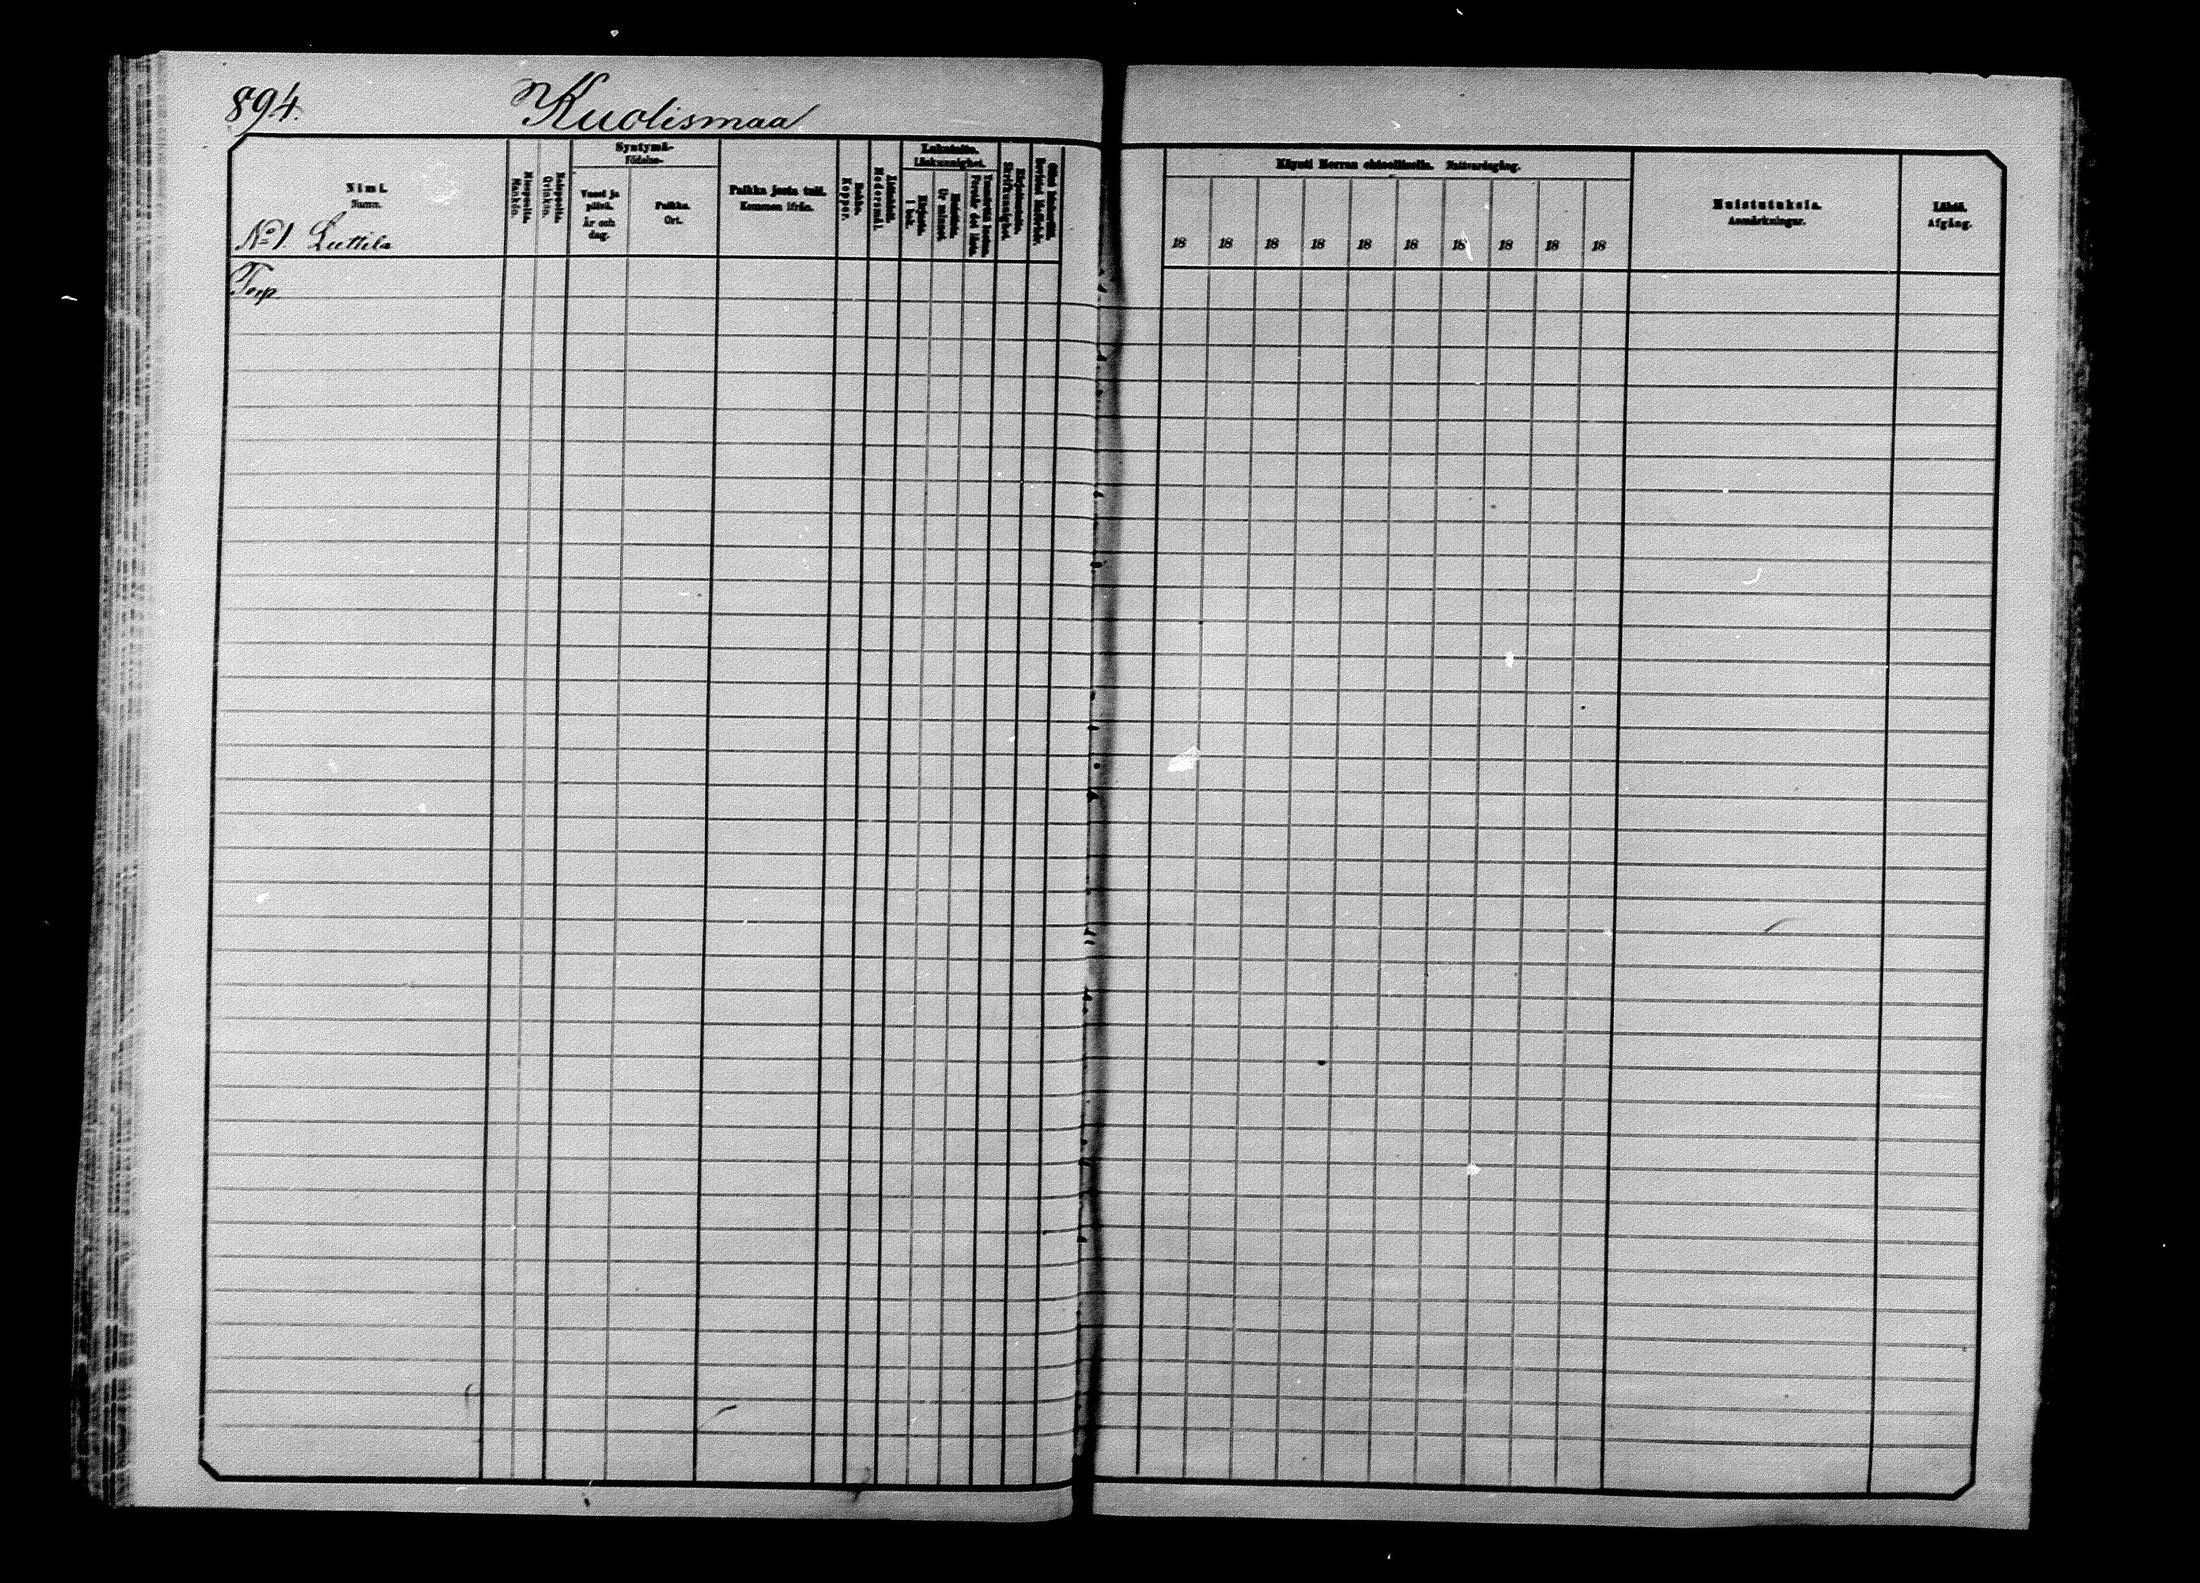 894.
Kuolismaa
Nimi.
Namn.
No 1. Luttila
Miespuolia.
Mankön.
Vaimopuolia.
Qvinkön.
Syntymä-
Födelse-
Vuosi ja
päivä.
År och
dag.
Paikka.
Ort.
Paikka josta tuli.
Kommen ifrån.
Rokko.
Koppor.
Modersmål.
Lukutaito.
Läskunnighet.
Kirjasta.
I bok.
Ur minnet.
Förstår det lästa.
Kirjoitustaito.
Skrifkunnighet
Käynti Herran ehtoollisella. Nattvardsgång.
18 18 18 18 18 18 18 18 18 18
Muistutuksia.
Anmärkningar.
Lähtö.
Afgång.
Torp